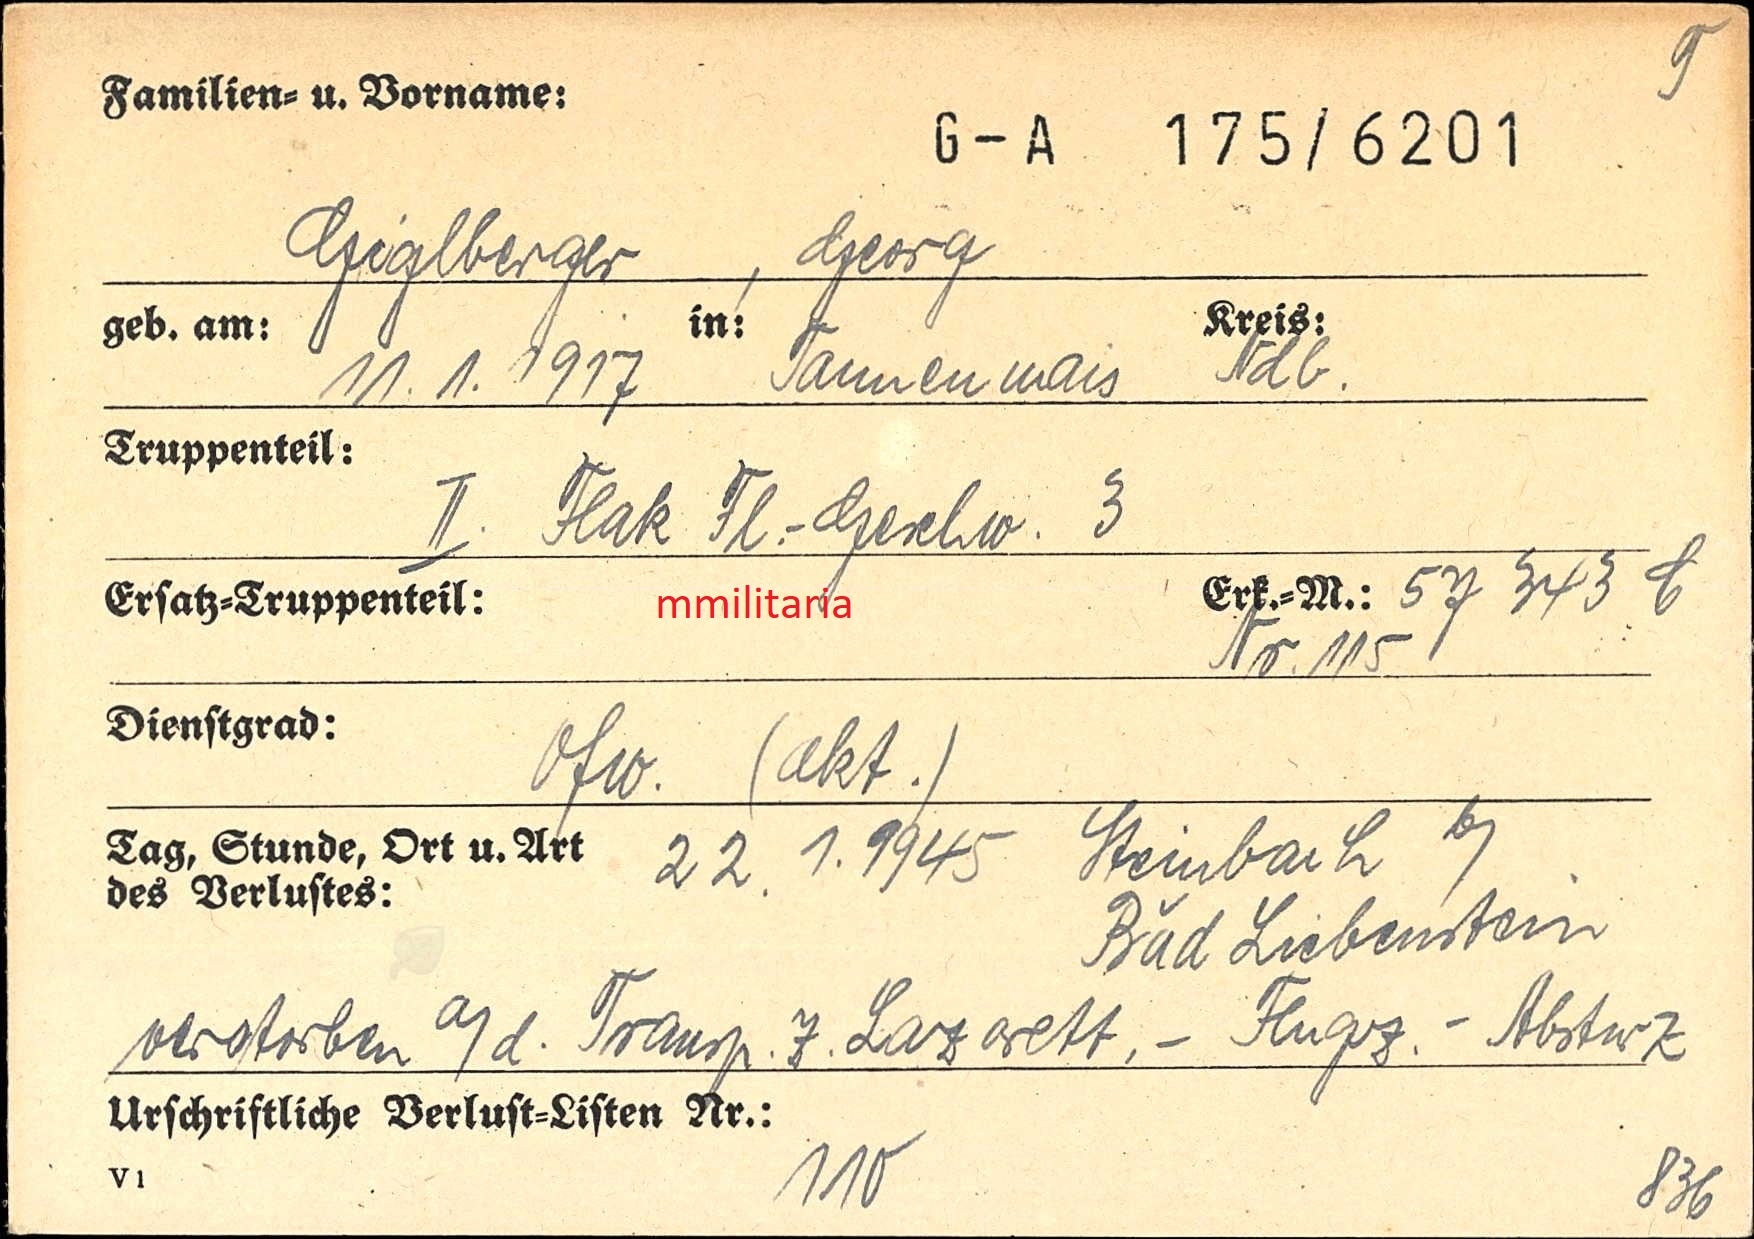 T
Familien- u. Vorname:
G-A 175/6201
Giglberger, Georg
geb. am: in: Kreis:
11.1.1917 Tannenmais Ndb.
Truppenteil:
II. Flak Fl.-Geschw. 3
Ersatz-Truppenteil: mmilitaria Erk.-M.: 57 343
Nr. 115
Dienstgrad:
Ofw. (akt.)
Tag, Stunde, Ort u. Art 22.1.1945 Steinbach b/
des Verlustes: Bad Liebenstein
verstorben a/d. Transp. z. Lazarett, - Flugz. - Absturz
Urschriftliche Verlust-Listen Nr.:
V1 110 836